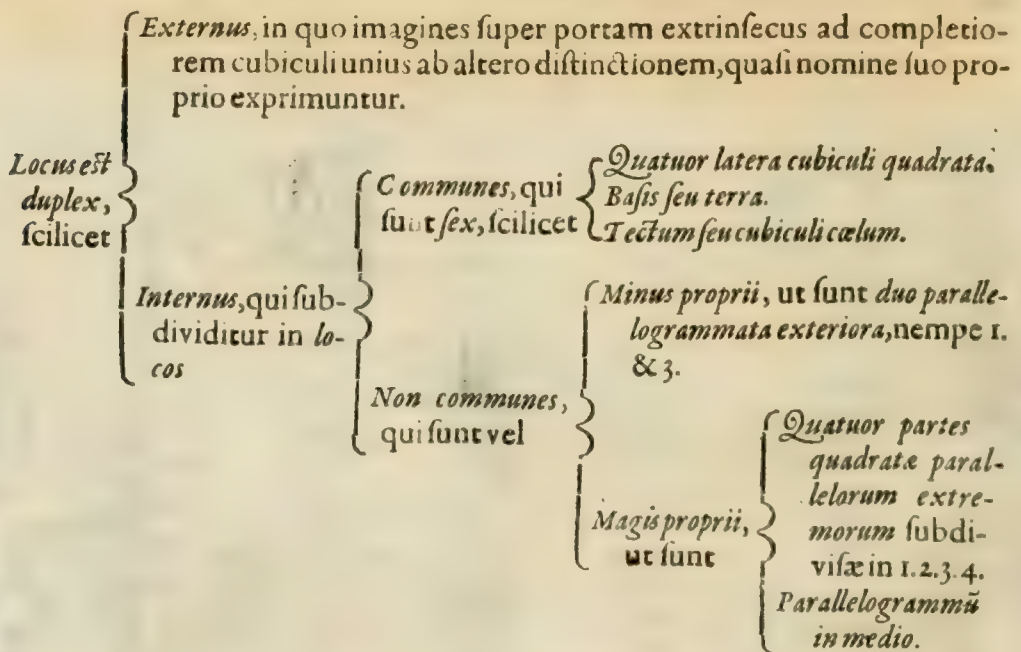 Externus, in quo imagines ſuper portam extrinſecus ad completio-
rem cubiculi unius ab altero diſtinctionem, quaſi nomine ſuo pro-
prio exprimuntur.
Locus eſt
duplex,
ſcilicet
Internus, qui ſub-
dividitur in lo-
cos
Communes, qui
ſunt ſex, ſcilicet
Quatuor latera cubiculi quadrata.
Baſis ſeu terra.
Tectum ſeu cubiculi cælum.
Non communes,
qui ſunt vel
Minus proprii, ut ſunt duo paralle-
logrammata exteriora, nempe 1.
& 3.
Magis proprii,
ut ſunt
Quatuor partes
quadratæ paral-
lelorum extre-
morum ſubdi-
viſæ in 1.2.3.4.
Parallelogrammũ
in medio.